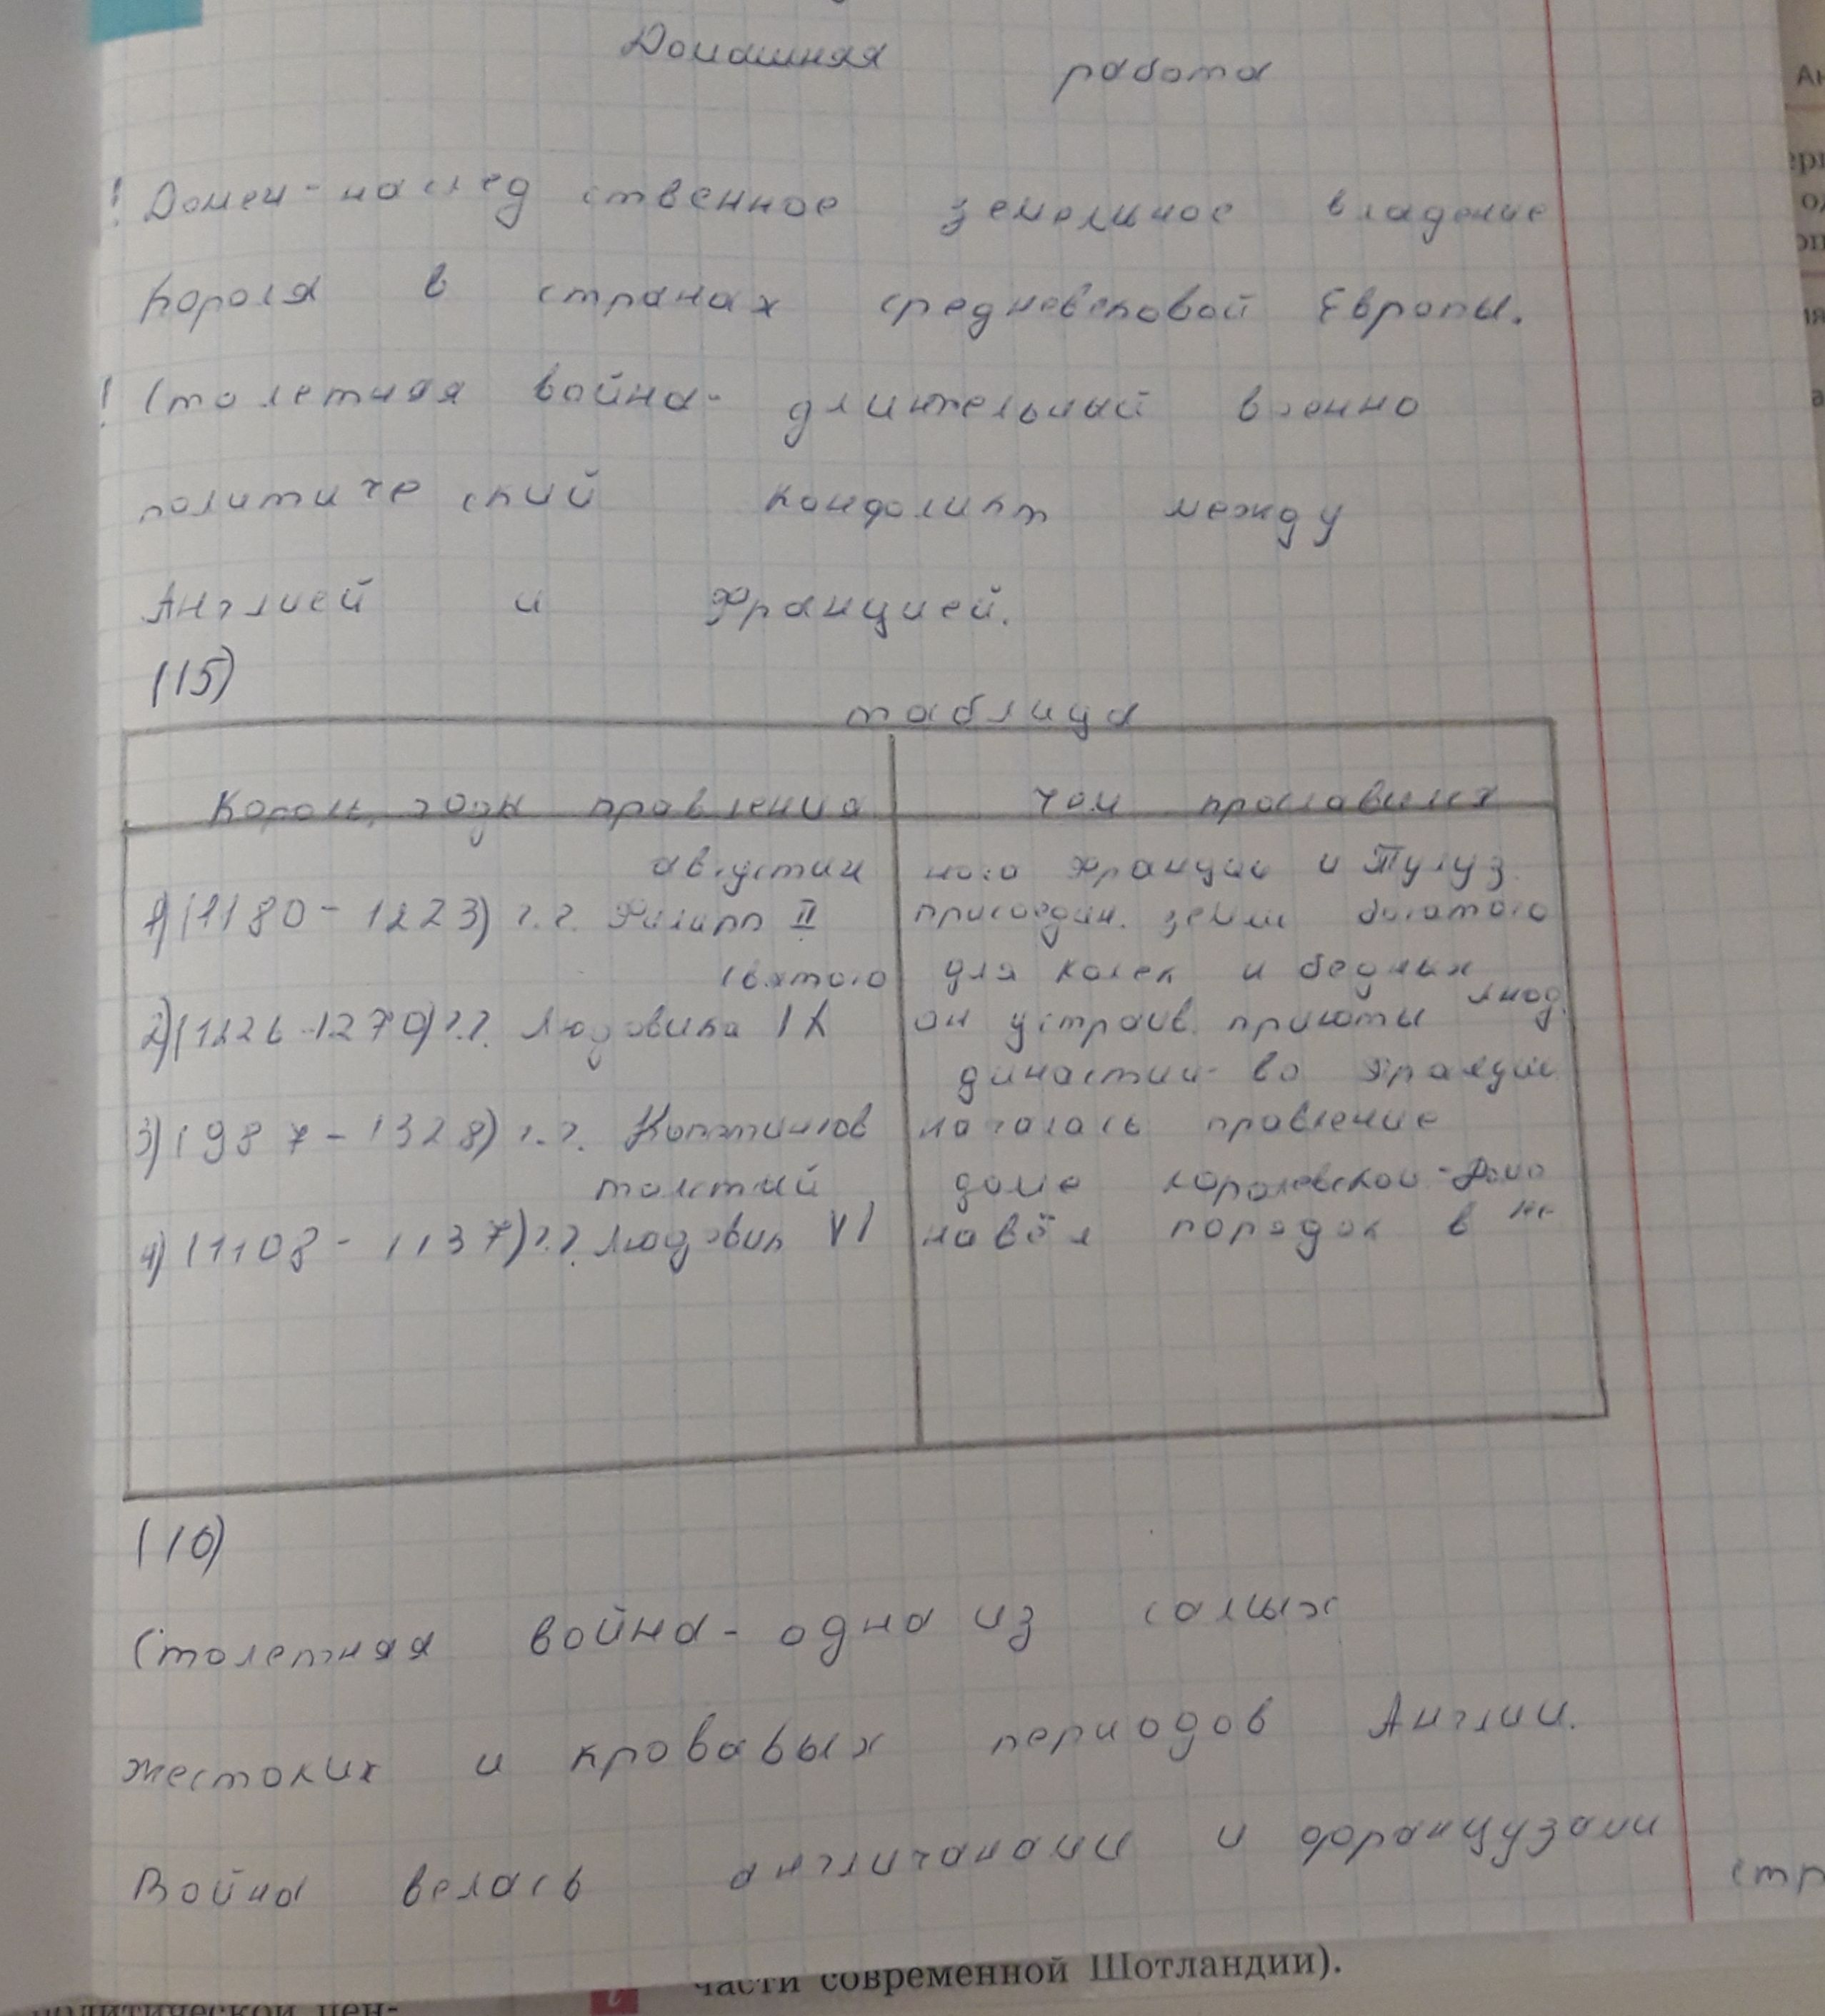 Домашняя работа
! Домен - наслед ственное земельное владение
короля в странах средневековой Европы.
! Столетняя война - длительный военно
политиче ский конфликт между
Англией и Францией.
(15)
таблица
Король, годы правления
Чем прославился
августин
ного Франции и Тулуз.
1) (1180 - 1223) г.г. Филипп II
присоедин. земли богатого
святого
для калек и бедных
2) (1226 - 1270) г.г. Людовика IX
он устроив. приюты люд.
династии - во Франции
3) (987 - 1328) г.г. Капетингов
началась правление
толстый
доме королевском - Доме
4) (1108 - 1137) г.г. Людовик VI
навёл порядок в
(16)
Столетняя война - одна из самых
жестоких и кровавых периодов Англии.
Война велась англичанами и французами
стр
части современной Шотландии).
политической цен-